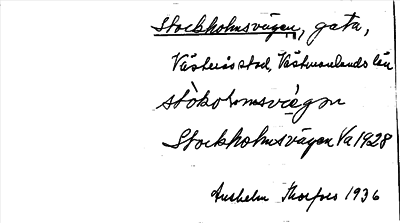 Stockholmsvägen, gata,
Västerås stad, Västmanlands län
stòkolmsvä̀gən
Stockholmsvägen Va 1928
Anshelm Thorfors 1936